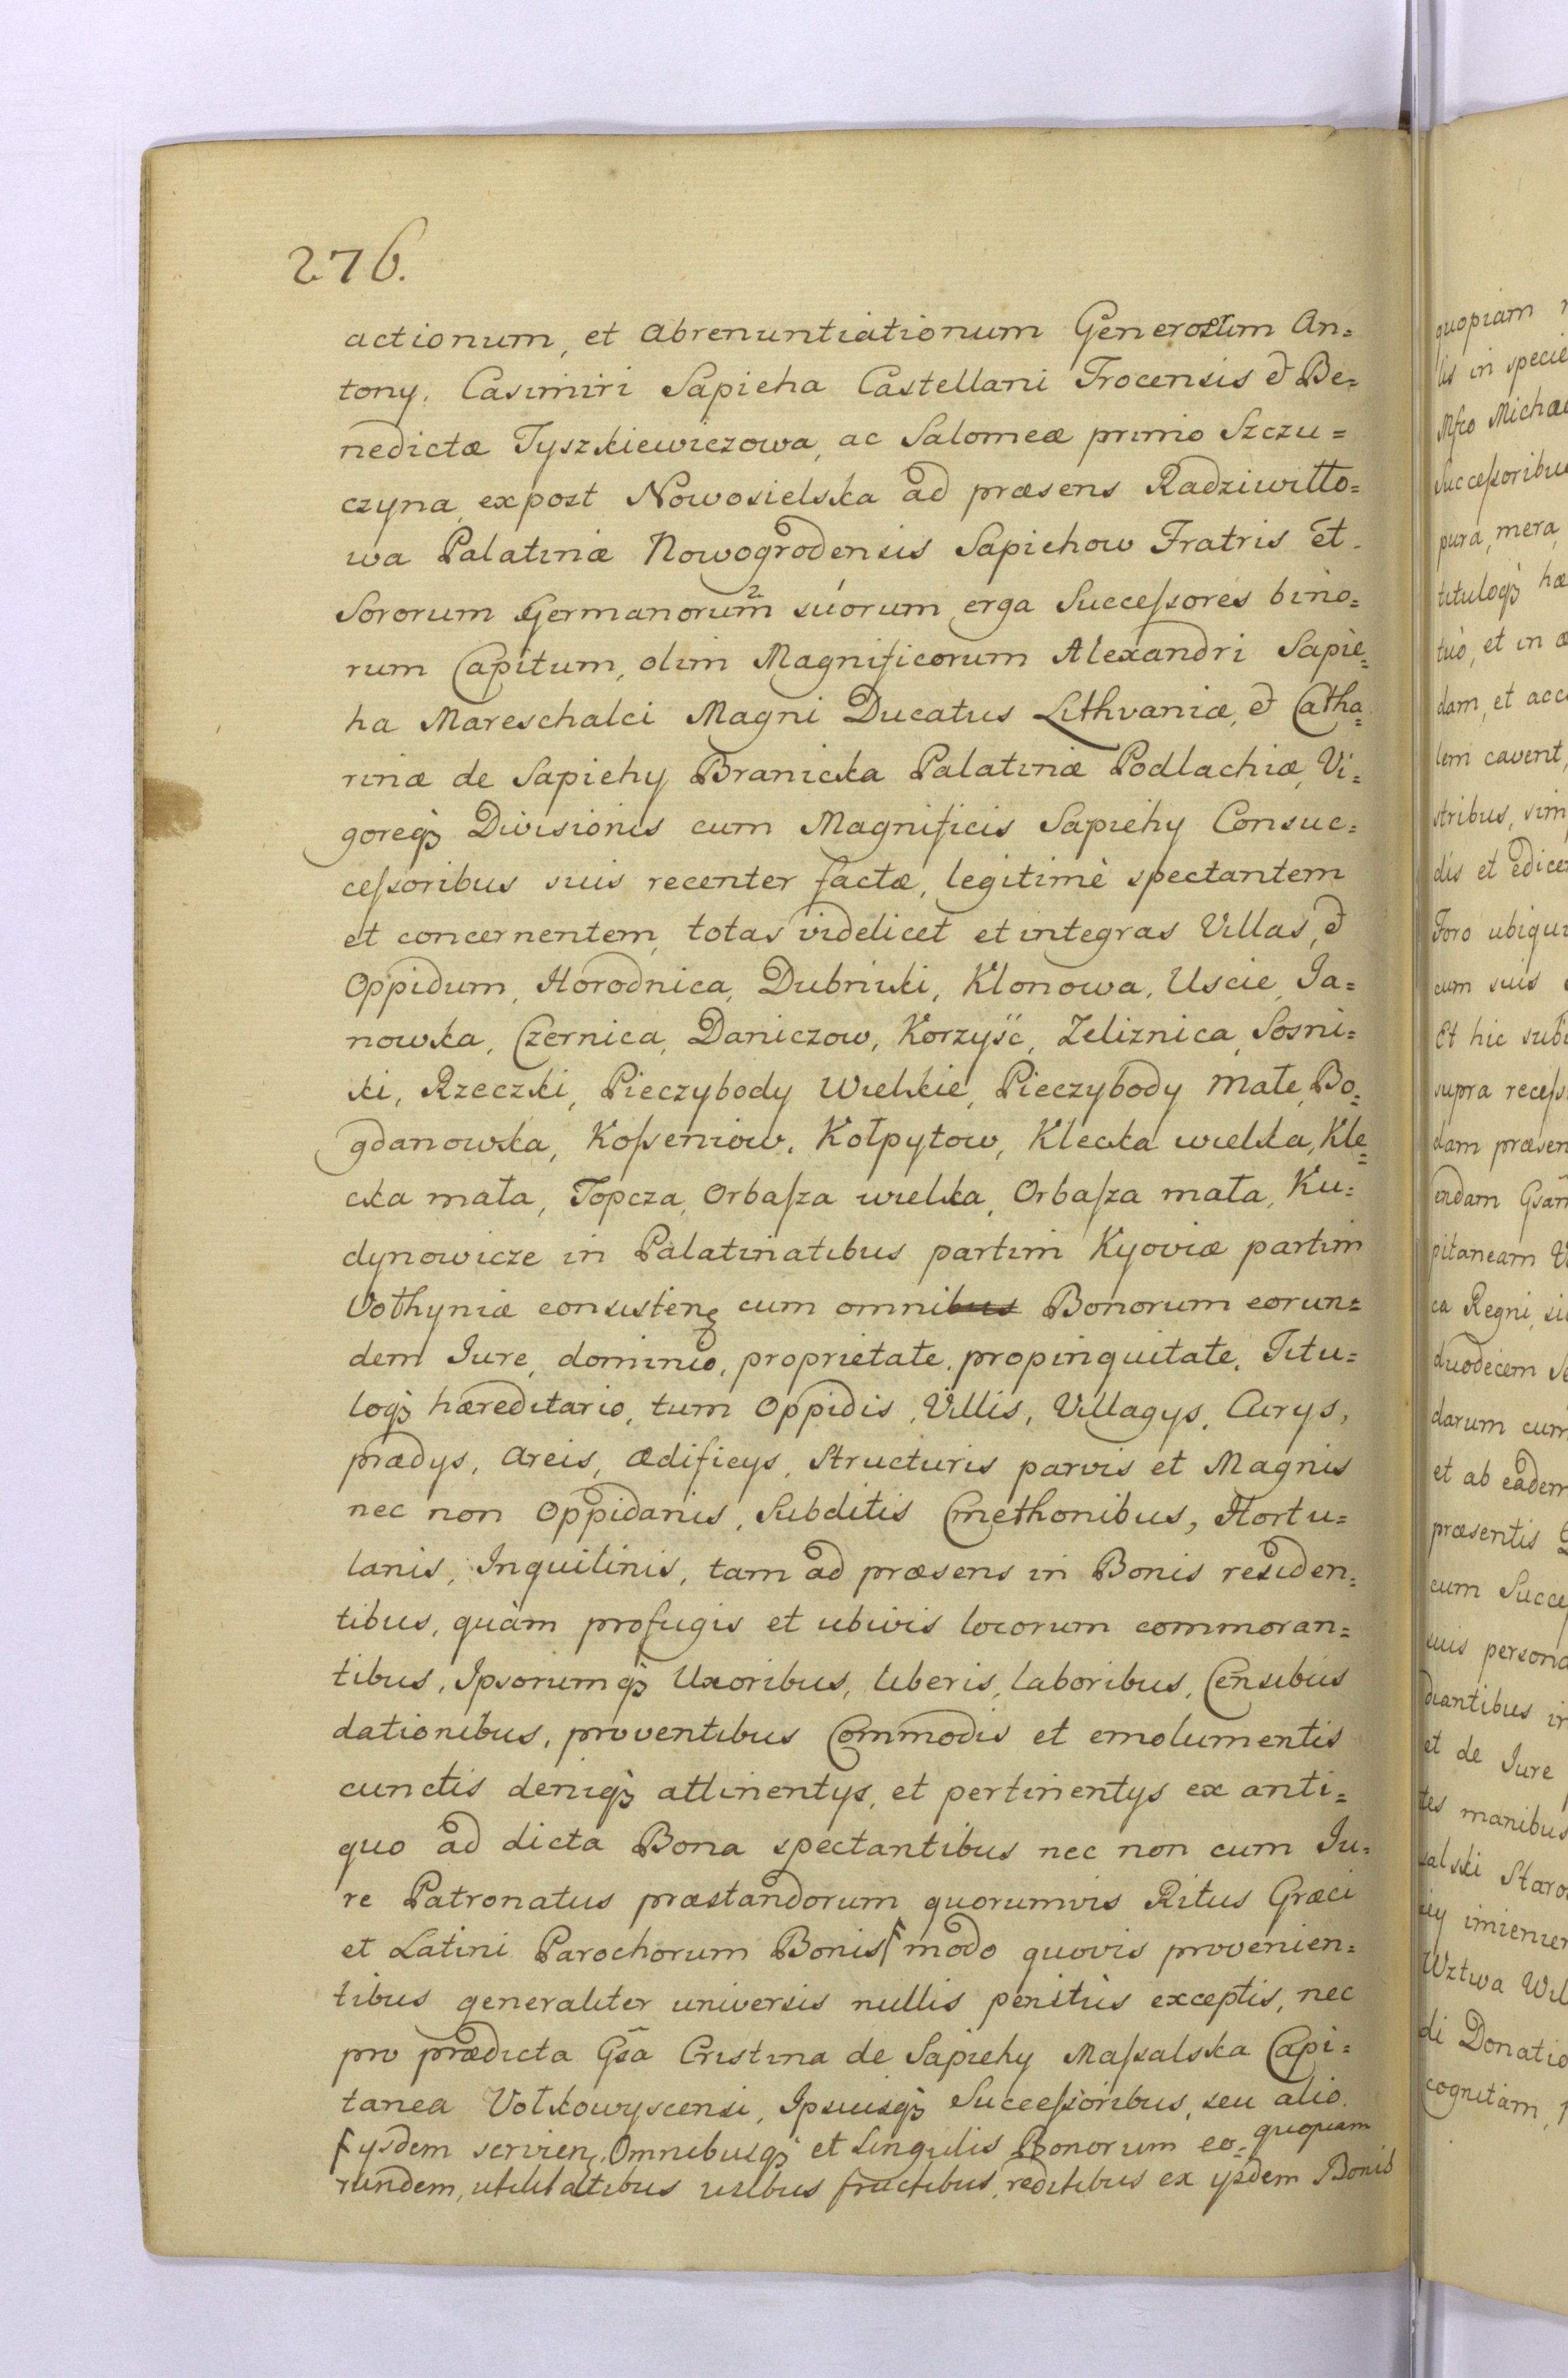 276.
actionum, et abrenuntiationum Generosum An=
tony, Casimiri Sapieha Castellani Trocensis & Be=
nedictæ Tyszkiewiczowa, ac Salomeæ primo Szczu=
czyna, expost Nowosielska ad præsens Radziwiłło=
wa Palatinæ Nowogrodensis Sapiehow Fratris et
Sororum Germanorum suorum erga Successores bino=
rum Capitum, olim Magnificorum Alexandri Sapie=
ha Mareschalci Magni Ducatus Lithvaniæ, & Catha=
rinæ de Sapiehy Branicka Palatinæ Podlachiæ, Vi=
goreq3 Divisionis cum Magnificis Sapiehy Consuc=
cessoribus suis recenter factæ, legitimè spectantem
et concernentem, totas videlicet et integras Villas, &
Oppidum, Horodnica, Dubniki, Klonowa, Uscie, Ja=
nowka, Czernica, Daniczow, Korzyść, Zeliznica, Sosni=
ki, Rzeczki, Pieczybody Wielkie, Pieczybody małe, Bo=
gdanowka, Kosseniow, Kołpytow, Klecka wielka, Kle=
cka mała, Topcza, Orbasza wielka, Orbasza mała, Ku=
dynowicze in Palatinatibus partim Kyoviæ partim
Vołhyniæ consisten cum omnibus Bonorum eorun=
dem Jure, dominio, proprietate, propinquitate, Titu=
loq3 hæreditario, tum Oppidis, Villis, Villagys, Curys,
prædys, areis, ædificys, structuris parvis et Magnis
nec non Oppidanis, Subditis Cmethonibus, Hortu=
lanis, Inquilinis, tam ad præsens in Bonis residen=
tibus, quàm profugis et ubivis locorum commoran=
tibus, Ipsorumq3 Uxoribus, liberis, laboribus, Censibus
dationibus, proventibus Commodis et emolumentis
cunctis deniq3 attinentys, et pertinentys ex anti=
quo ad dicta Bona spectantibus nec non cum Ju=
re Patronatus præstandorum quorumvis Ritus Græci
et Latini Parochorum Bonis modo quovis provenien=
tibus generaliter universis nullis penitùs exceptis, nec
pro prædicta Gsa Cristina de Sapiehy Massalska Capi=
tanea Vołkowyscensi, Ipsiusq3 Successoribus, seu alio
quopiam
ysdem servien, Omnibusq3 et singulis Bonorum eo=
rundem, utilitatibus usibus fructibus, reditibus ex ysdem Bonis
quopiam
in specie
Michae
Successoribus
pura, mera,
tituloq3 hæ
tuò, et in
dam, et acc
lem cavent,
stribus, sim
dis et edice
Foro ubiqu
cum suis
Et hic sub
supra recess
dam præsen
endam Gsam
pitaneam V
ca Regni, si
duodecem
darum cum
et ab eadem
præsentis
cum Succe
suis persona
diantibus in
et de Jure
tes manibus
salski Staro
ey imienie
Wztwa Wil
di Donatio
cognitam,